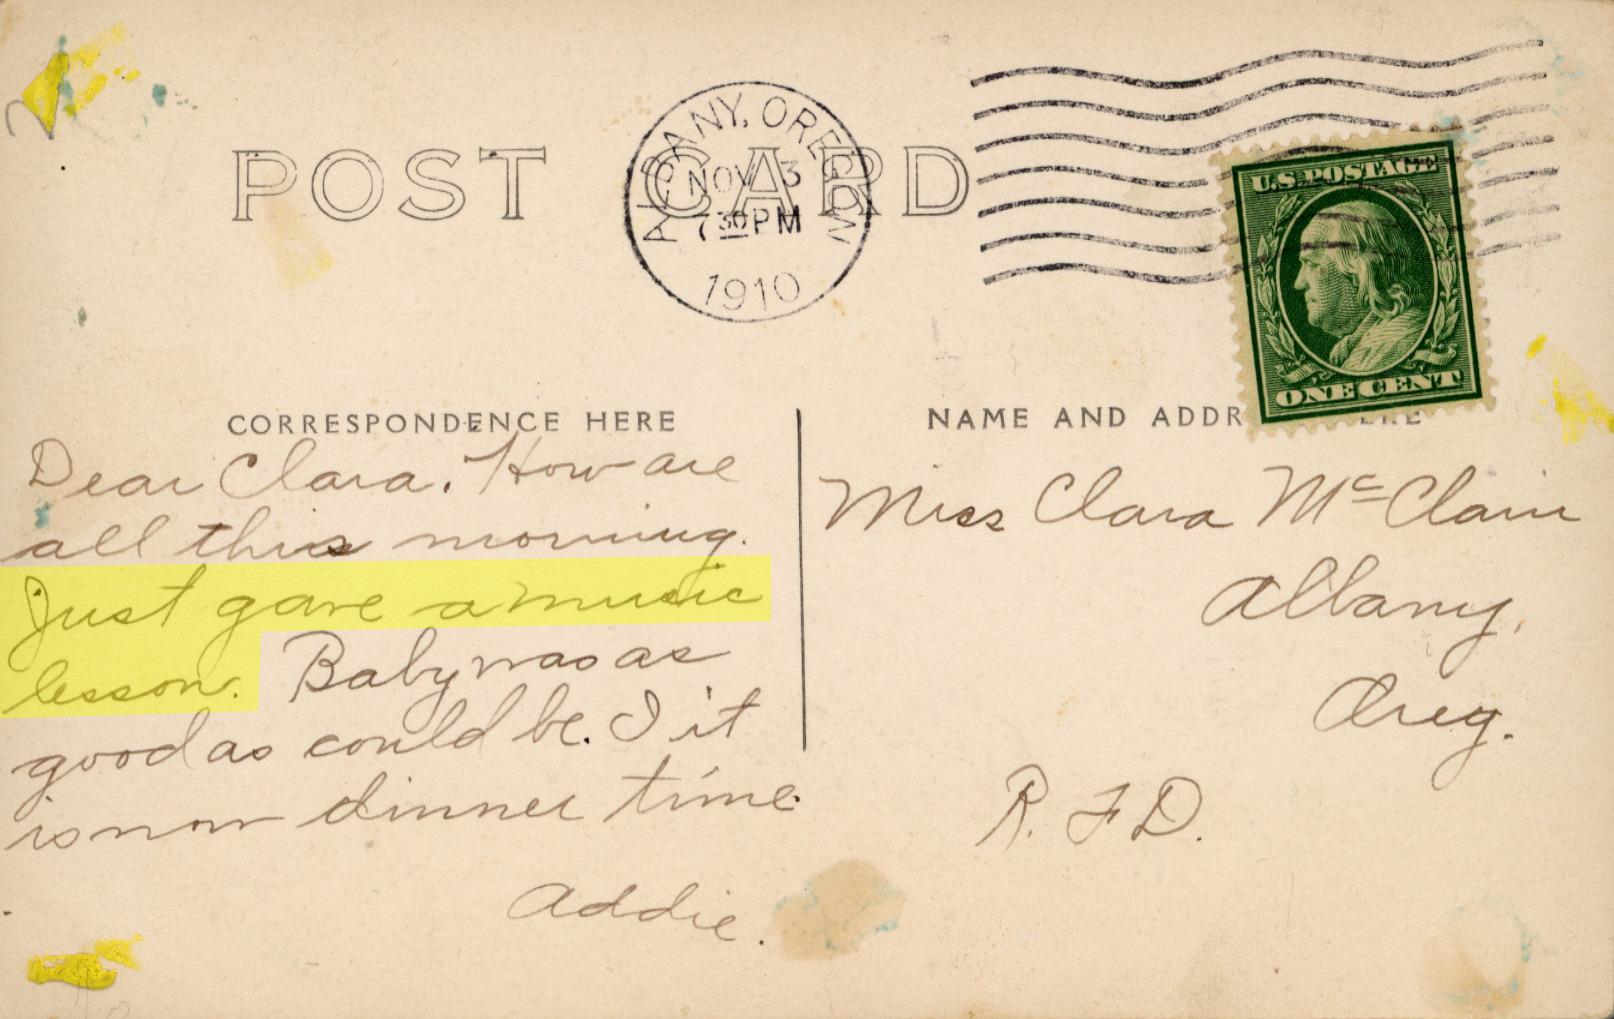 POST CARD
ALBANY, OREGON
NOV 3
730 PM
1910
U.S. POSTAGE
ONE CENT
CORRESPONDENCE HERE
Dear Clara. How are
all this morning.
Just gave a music
lesson. Baby was as
good as could be. I it
is now dinner time.
Addie.
NAME AND ADDR ERE
Miss Clara McClain
Albany,
Oreg.
R. F. D.